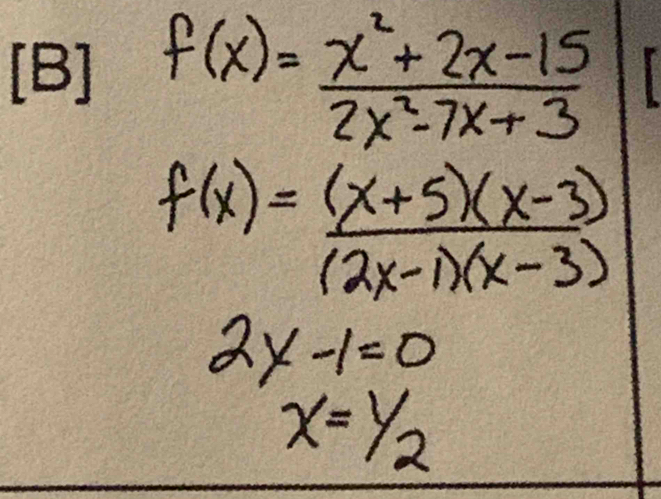 [B] f(x) = x² + 2x - 15 / 2x² - 7x + 3 [
f(x) = (x + 5)(x - 3) / (2x - 1)(x - 3)
2x - 1 = 0
x = 1/2